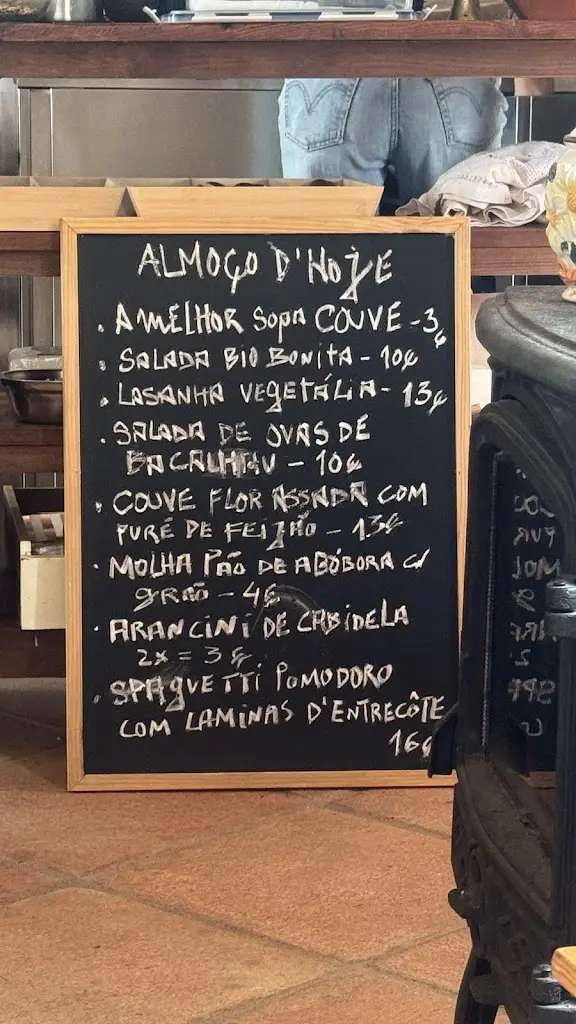 ALMOÇO D'HOJE
• A MELHOR SOPA COUVE - 3€
• SALADA BIO BONITA - 10€
• LASANHA VEGETÁLIA - 13€
• SALADA DE OVAS DE
BACALHAU - 10€
• COUVE FLOR ASSADA COM
PURÉ DE FEIJÃO - 13€
• MOLHA PÃO DE ABÓBORA C/
GRÃO - 4€
• ARANCINI DE CABIDELA
2X = 3€
• SPAGUETTI POMODORO
COM LAMINAS D'ENTRECÔTE
16€